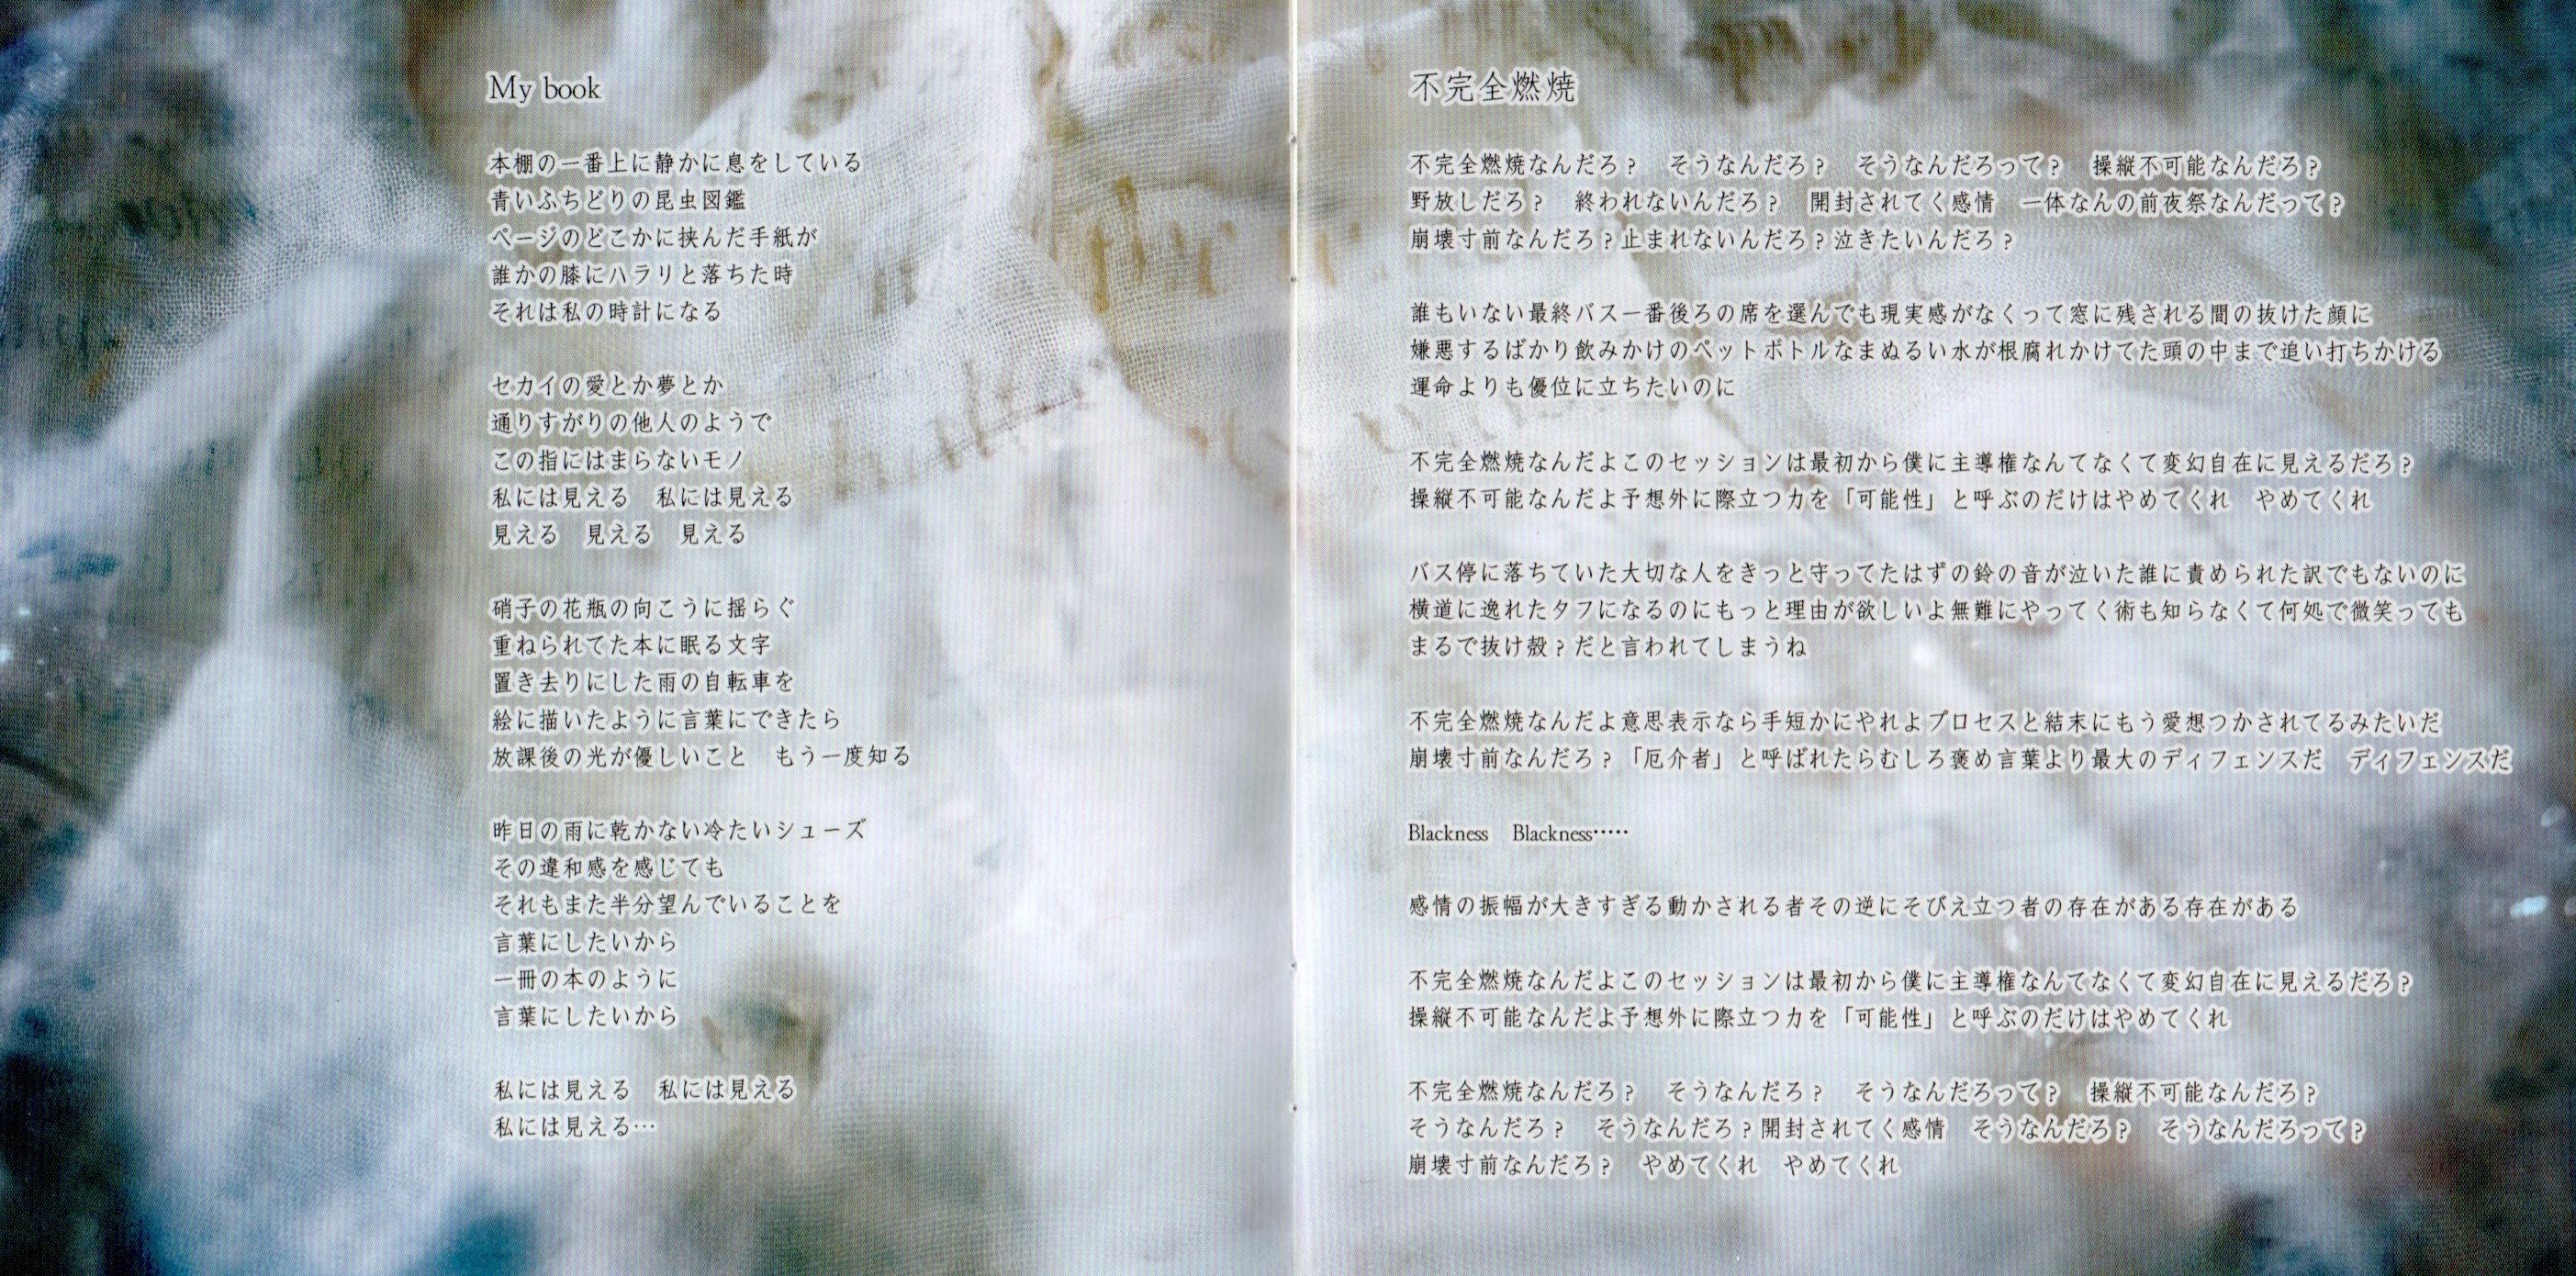 My book
本棚の一番上に静かに息をしている
青いふちどりの昆虫図鑑
ページのどこかに挟んだ手紙が
誰かの膝にハラリと落ちた時
それは私の時計になる
セカイの愛とか夢とか
通りすがりの他人のようで
この指にはまらないモノ
私には見える　私には見える
見える　見える　見える
硝子の花瓶の向こうに揺らぐ
重ねられてた本に眠る文字
置き去りにした雨の自転車を
絵に描いたように言葉にできたら
放課後の光が優しいこと　もう一度知る
昨日の雨に乾かない冷たいシューズ
その違和感を感じても
それもまた半分望んでいることを
言葉にしたいから
一冊の本のように
言葉にしたいから
私には見える　私には見える
私には見える…
不完全燃焼
不完全燃焼なんだろ？　そうなんだろ？　そうなんだろって？　操縦不可能なんだろ？
野放しだろ？　終われないんだろ？　開封されてく感情　一体なんの前夜祭なんだって？
崩壊寸前なんだろ？止まれないんだろ？泣きたいんだろ？
誰もいない最終バス一番後ろの席を選んでも現実感がなくって窓に残される間の抜けた顔に
嫌悪するばかり飲みかけのペットボトルなまぬるい水が根腐れかけてた頭の中まで追い打ちかける
運命よりも優位に立ちたいのに
不完全燃焼なんだよこのセッションは最初から僕に主導権なんてなくて変幻自在に見えるだろ？
操縦不可能なんだよ予想外に際立つ力を「可能性」と呼ぶのだけはやめてくれ　やめてくれ
バス停に落ちていた大切な人をきっと守ってたはずの鈴の音が泣いた誰に責められた訳でもないのに
横道に逸れたタフになるのにもっと理由が欲しいよ無難にやってく術も知らなくて何処で微笑っても
まるで抜け殻？だと言われてしまうね
不完全燃焼なんだよ意思表示なら手短かにやれよプロセスと結末にもう愛想つかされてるみたいだ
崩壊寸前なんだろ？「厄介者」と呼ばれたらむしろ褒め言葉より最大のディフェンスだ　ディフェンスだ
Blackness　Blackness‥‥‥
感情の振幅が大きすぎる動かされる者その逆にそびえ立つ者の存在がある存在がある
不完全燃焼なんだよこのセッションは最初から僕に主導権なんてなくて変幻自在に見えるだろ？
操縦不可能なんだよ予想外に際立つ力を「可能性」と呼ぶのだけはやめてくれ
不完全燃焼なんだろ？　そうなんだろ？　そうなんだろって？　操縦不可能なんだろ？
そうなんだろ？　そうなんだろ？開封されてく感情　そうなんだろ？　そうなんだろって？
崩壊寸前なんだろ？　やめてくれ　やめてくれ